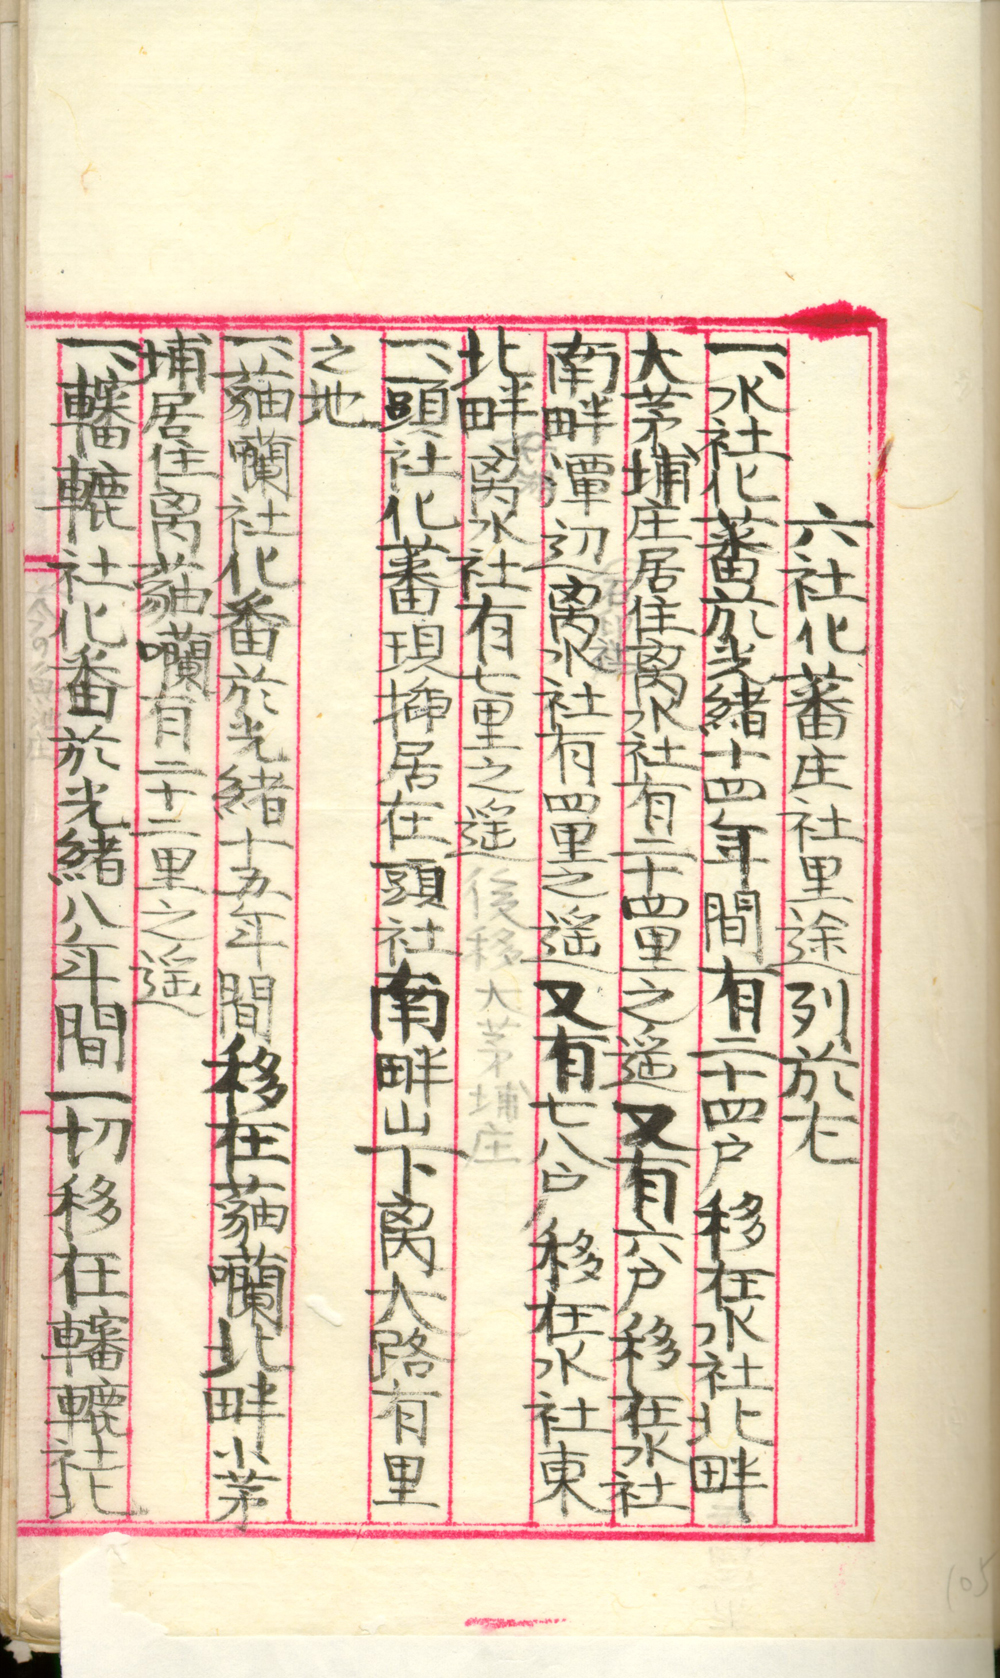 六社化蕃庄社里途列於左
一、水社化蕃於光緒十四年間有二十四户移在水社北畔
大茅埔庄居住离水社有二十四里之遥又有六户移在水社
南畔潭边离水社有四里之遥又有七八户移在水社東
北畔离水社有七里之遥後移大茅埔庄
一、頭社化蕃現揷居在頭社南畔山下离大路有里
之地
一、猫囒社化番於光緒十五年間移在猫囒北畔小茅
埔居住离猫囒有二十二里之遥
一、轓轆社化番於光緒八年間一切移在轓轆社北
105